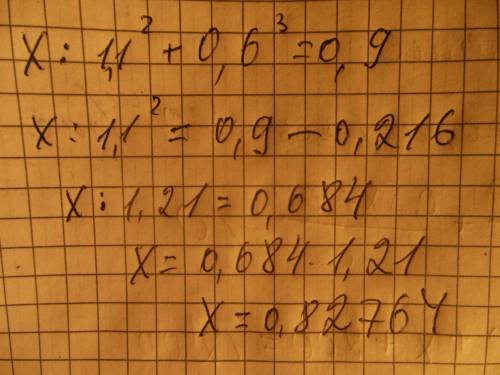 x : 1,1² + 0,6³ = 0,9
x : 1,1² = 0,9 – 0,216
x : 1,21 = 0,684
x = 0,684 · 1,21
x = 0,82764